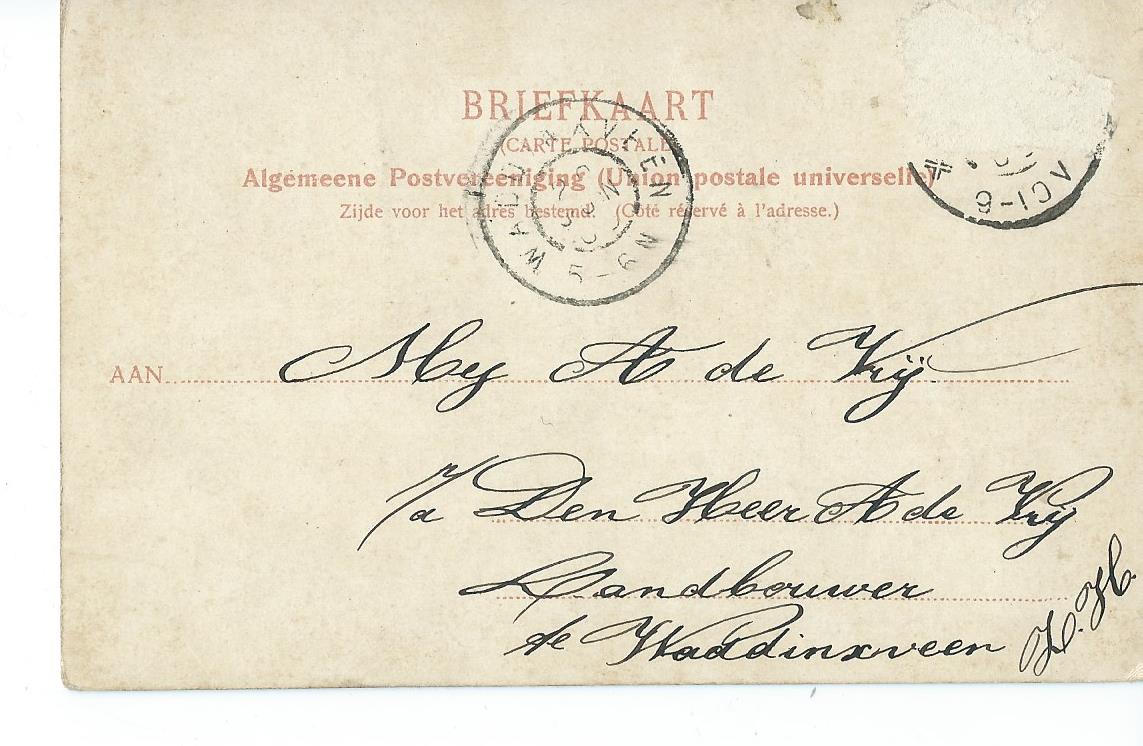 BRIEFKAART
(CARTE POSTALE)
Algemeene Postvereeniging (Union postale universelle)
Zijde voor het adres bestemd. (Côté réservé à l'adresse.)
WADDINXVEEN
5-6N
9-10V
AAN
Mej A de Vrij
p/a Den Heer A de Vrij
Landbouwer
te Waddinxveen
Z.H.